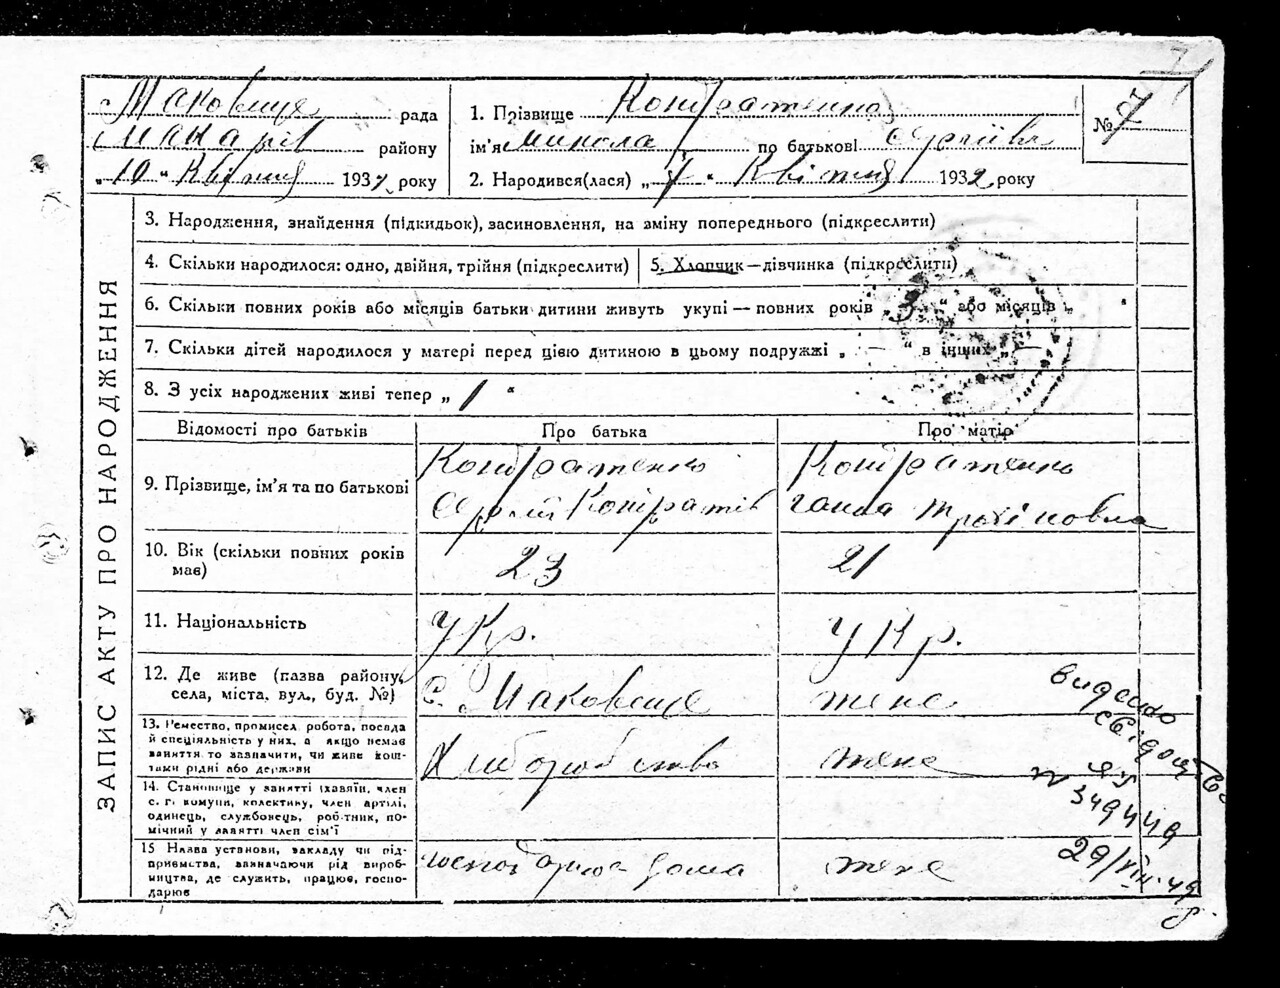 с. Маковище рада
Макарів району
„10" Квітня 1932 року
1. Прізвище Кондратенко
ім'я Микола по батькові Сергіїв
2. Народився(лася) „7" Квітня 1932 року
№
ЗАПИС АКТУ ПРО НАРОДЖЕННЯ
3. Народження, знайдення (підкидьок), засиновлення, на зміну попереднього (підкреслити)
4. Скільки народилося: одно, двійня, трійня (підкреслити)
5. Хлопчик—дівчинка (підкреслити)
6. Скільки повних років або місяців батьки дитини живуть укупі — повних років „3" або місяців „ "
7. Скільки дітей народилося у матері перед цією дитиною в цьому подружжі „ — " в інших „ —
8. З усіх народжених живі тепер „ 1 "
Відомості про батьків Про батька Про матір
9. Прізвище, ім'я та по батькові
Кондратенко
Сергій Кондратів
Кондратенко
Ганна Трохимовна
10. Вік (скільки повних років
має)
23
21
11. Національність
Укр.
Укр.
12. Де живе (назва району,
села, міста, вул., буд. №)
с. Маковище
теже
13. Ремество, промисел, робота, посада
й спеціяльність у них, а якщо немає
заняття то зазначити, чи живе кош-
тами рідні або держави
Хліборобство
теже
14. Становище у занятті (хазяїн, член
с. г. комуни, колективу, член артілі,
одинець, службовець, робітник, по-
мічний у занятті член сім'ї
15 Назва установи, закладу чи під-
приємства, зазначаючи рід вироб-
ництва, де служить, працює, госпо-
дарює
дома
теже
видано
свідоцтво
№ 349449
29/VIII-49
р.